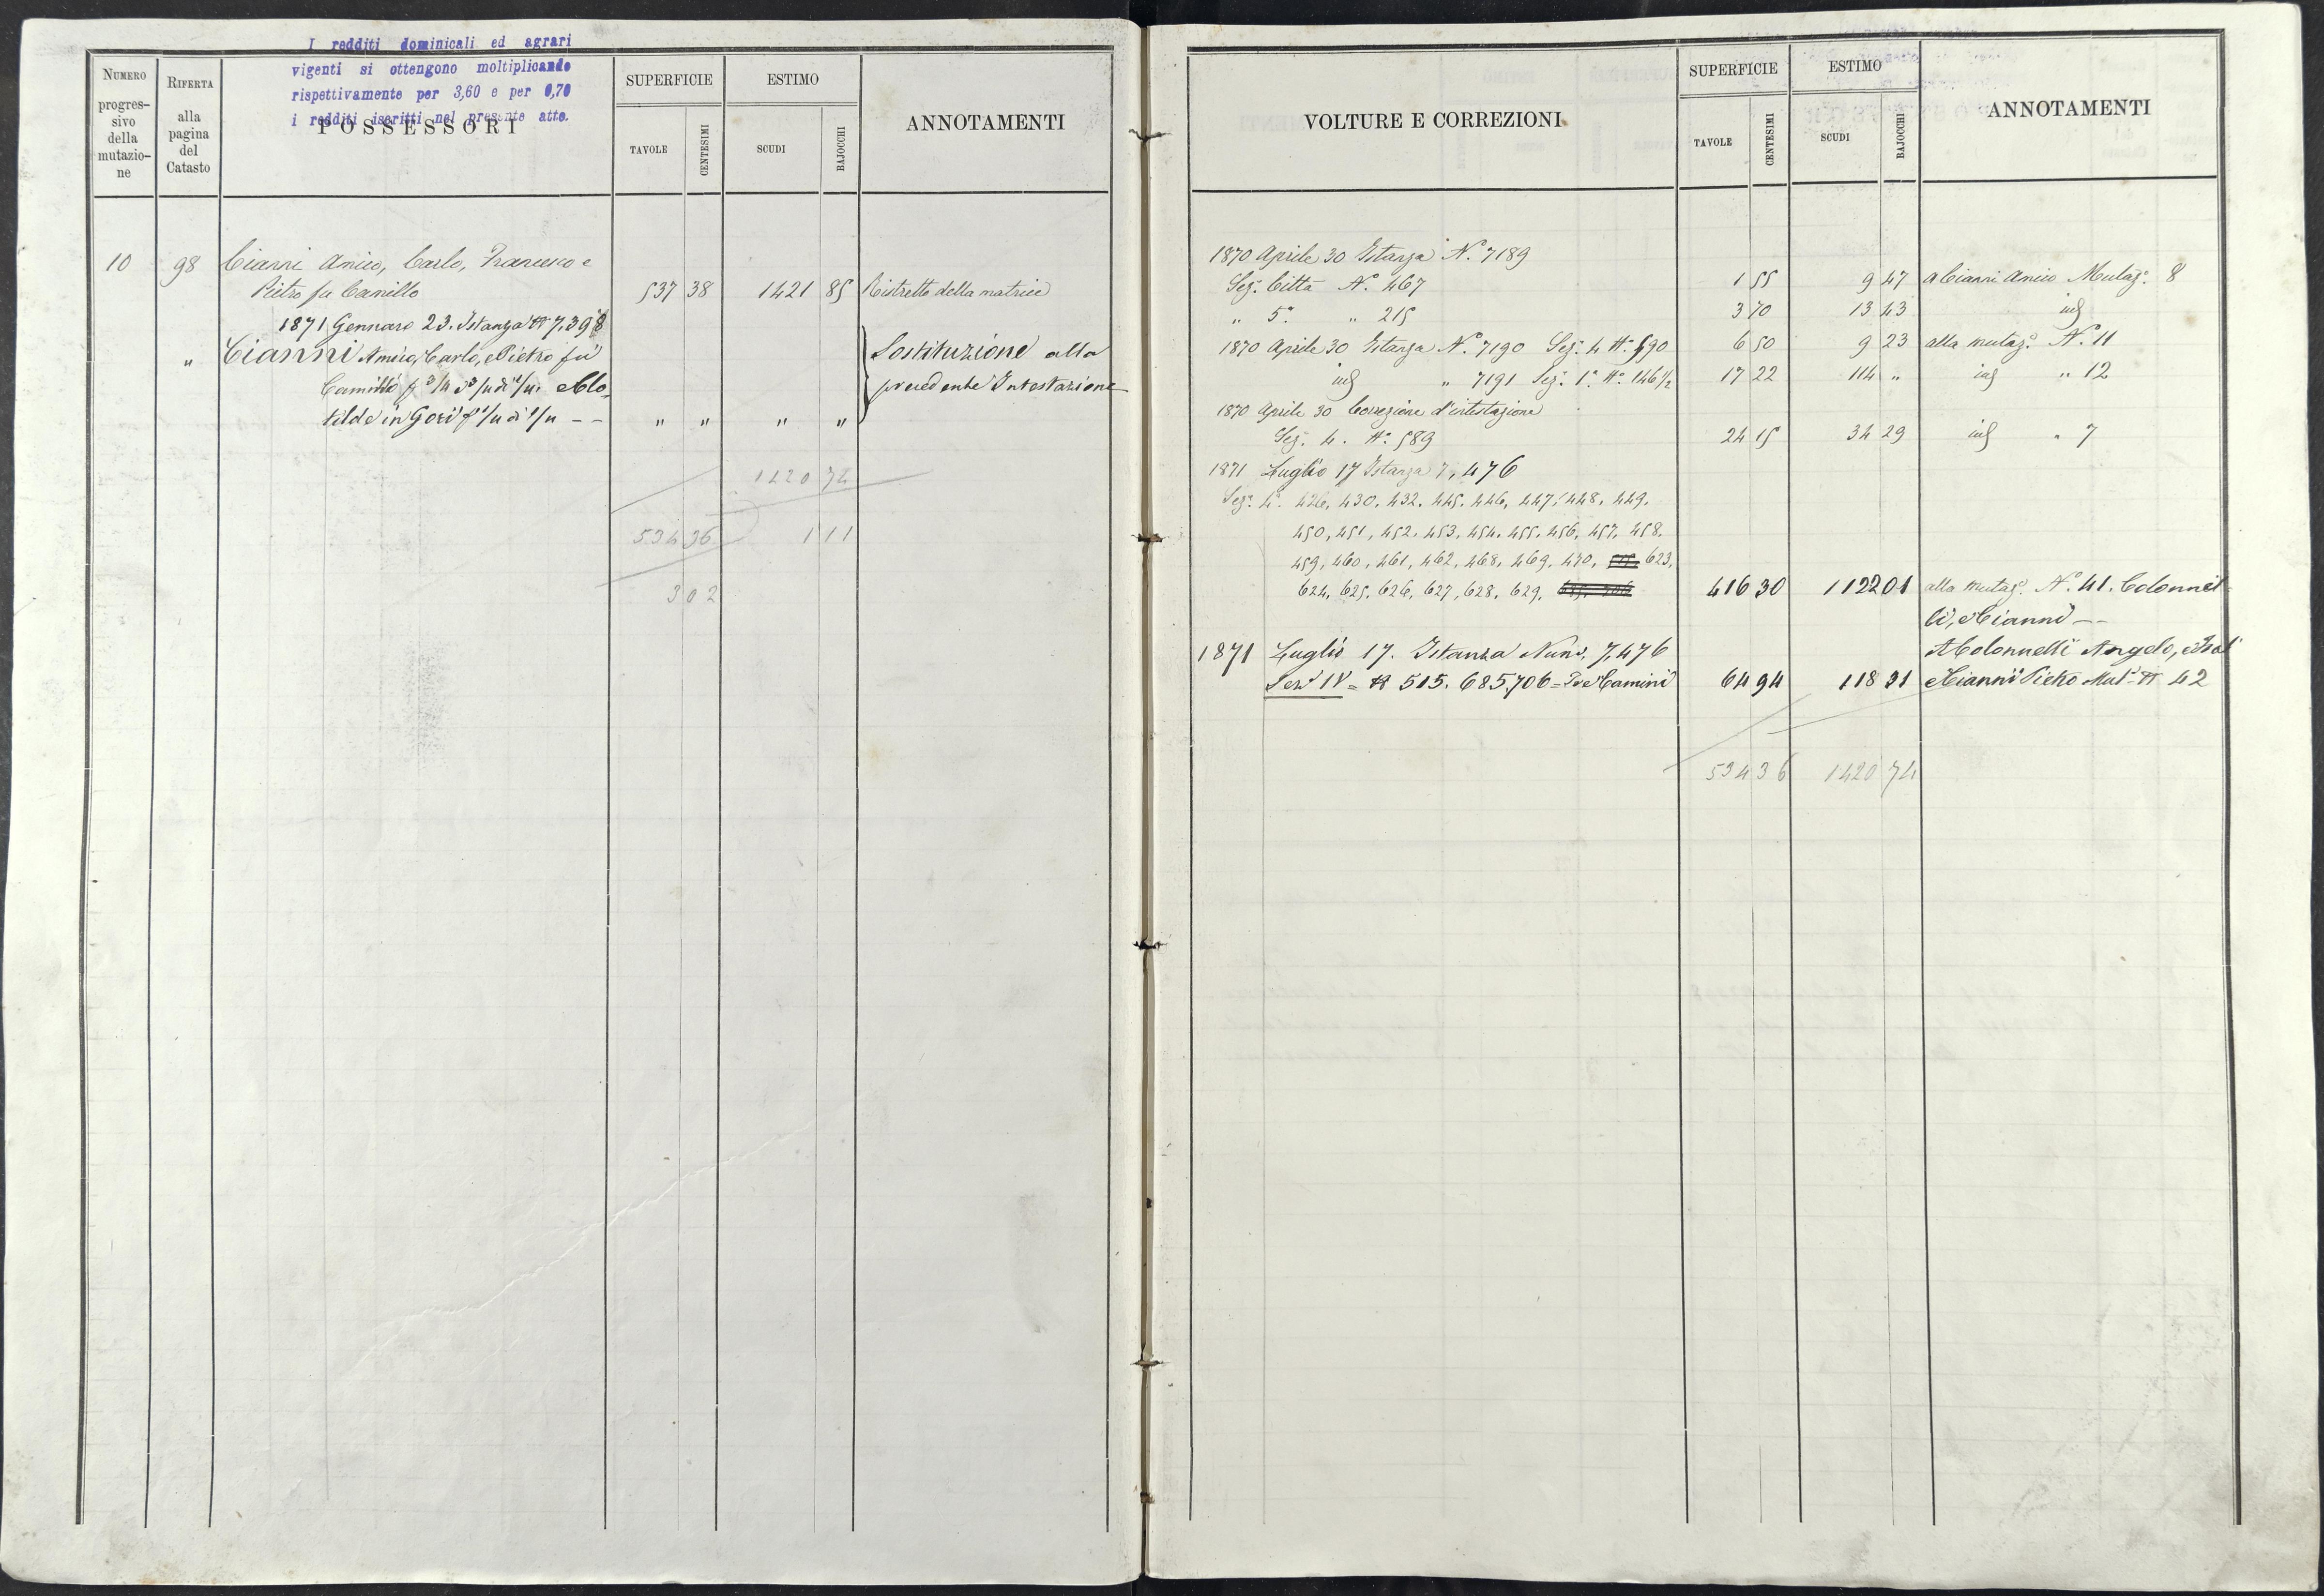 I redditi dominicali ed agrari
vigenti si ottengono moltiplicando
rispettivamente per 3,60 e per 0,70
i redditi iscritti nel presente atto.
NUMERO progres-sivo della mutazio-ne
RIFERTA alla pagina del Catasto
POSSESSORI
SUPERFICIE
TAVOLE CENTESIMI
ESTIMO
SCUDI BAJOCCHI
ANNOTAMENTI
10 98 Cianni Amico, Carlo, Francesco e
Pietro fu Camillo 537 38 1421 85 Ristretto della matrice
1871 Gennaro 23. Istanza N 7,398
" Cianni Amico, Carlo, e Pietro fu Sostituzione alla
Camillo precedente Intestazione
tilde in Gori " " " "
1420 74
534 36 1 11
3 02
VOLTURE E CORREZIONI
SUPERFICIE
TAVOLE CENTESIMI
ESTIMO
SCUDI BAJOCCHI
ANNOTAMENTI
1870 Aprile 30 Istanza N.° 7189
Sez.e Città N.° 467 1 55 9 47 a Cianni Amico Mutaz.e 8
" 5.a " 215 3 70 13 43
1870 Aprile 30 Istanza N.° 7190 Sez.e 4 N.° 590 6 50 9 23 alla mutaz.e N.° 11
" 7191 Sez.e 1.a N.° 146 1/2 17 22 114 " " 12
1870 Aprile 30 Correzione d'intestazione
Sez. 4. N.° 589 24 15 34 29 " 7
1871 Luglio 17 Istanza 7,476
Sez.e 4.a 426, 430, 432, 445, 446, 447, 448, 449,
450, 451, 452, 453, 454, 455, 456, 457, 458,
459, 460, 461, 462, 468, 469, 470, 623,
624, 625, 626, 627, 628, 629, 416 30 1122 01 alla mutaz.e N.° 41. Colonnel-
li, e Cianni --
1871 Luglio 17. Istanza Num. 7,476 A Colonnelli Angelo,
Sez. IV = N 515. 685. 706 = 64 94 118 31 e Cianni Pietro Mut.e N 42
534 36 1420 74